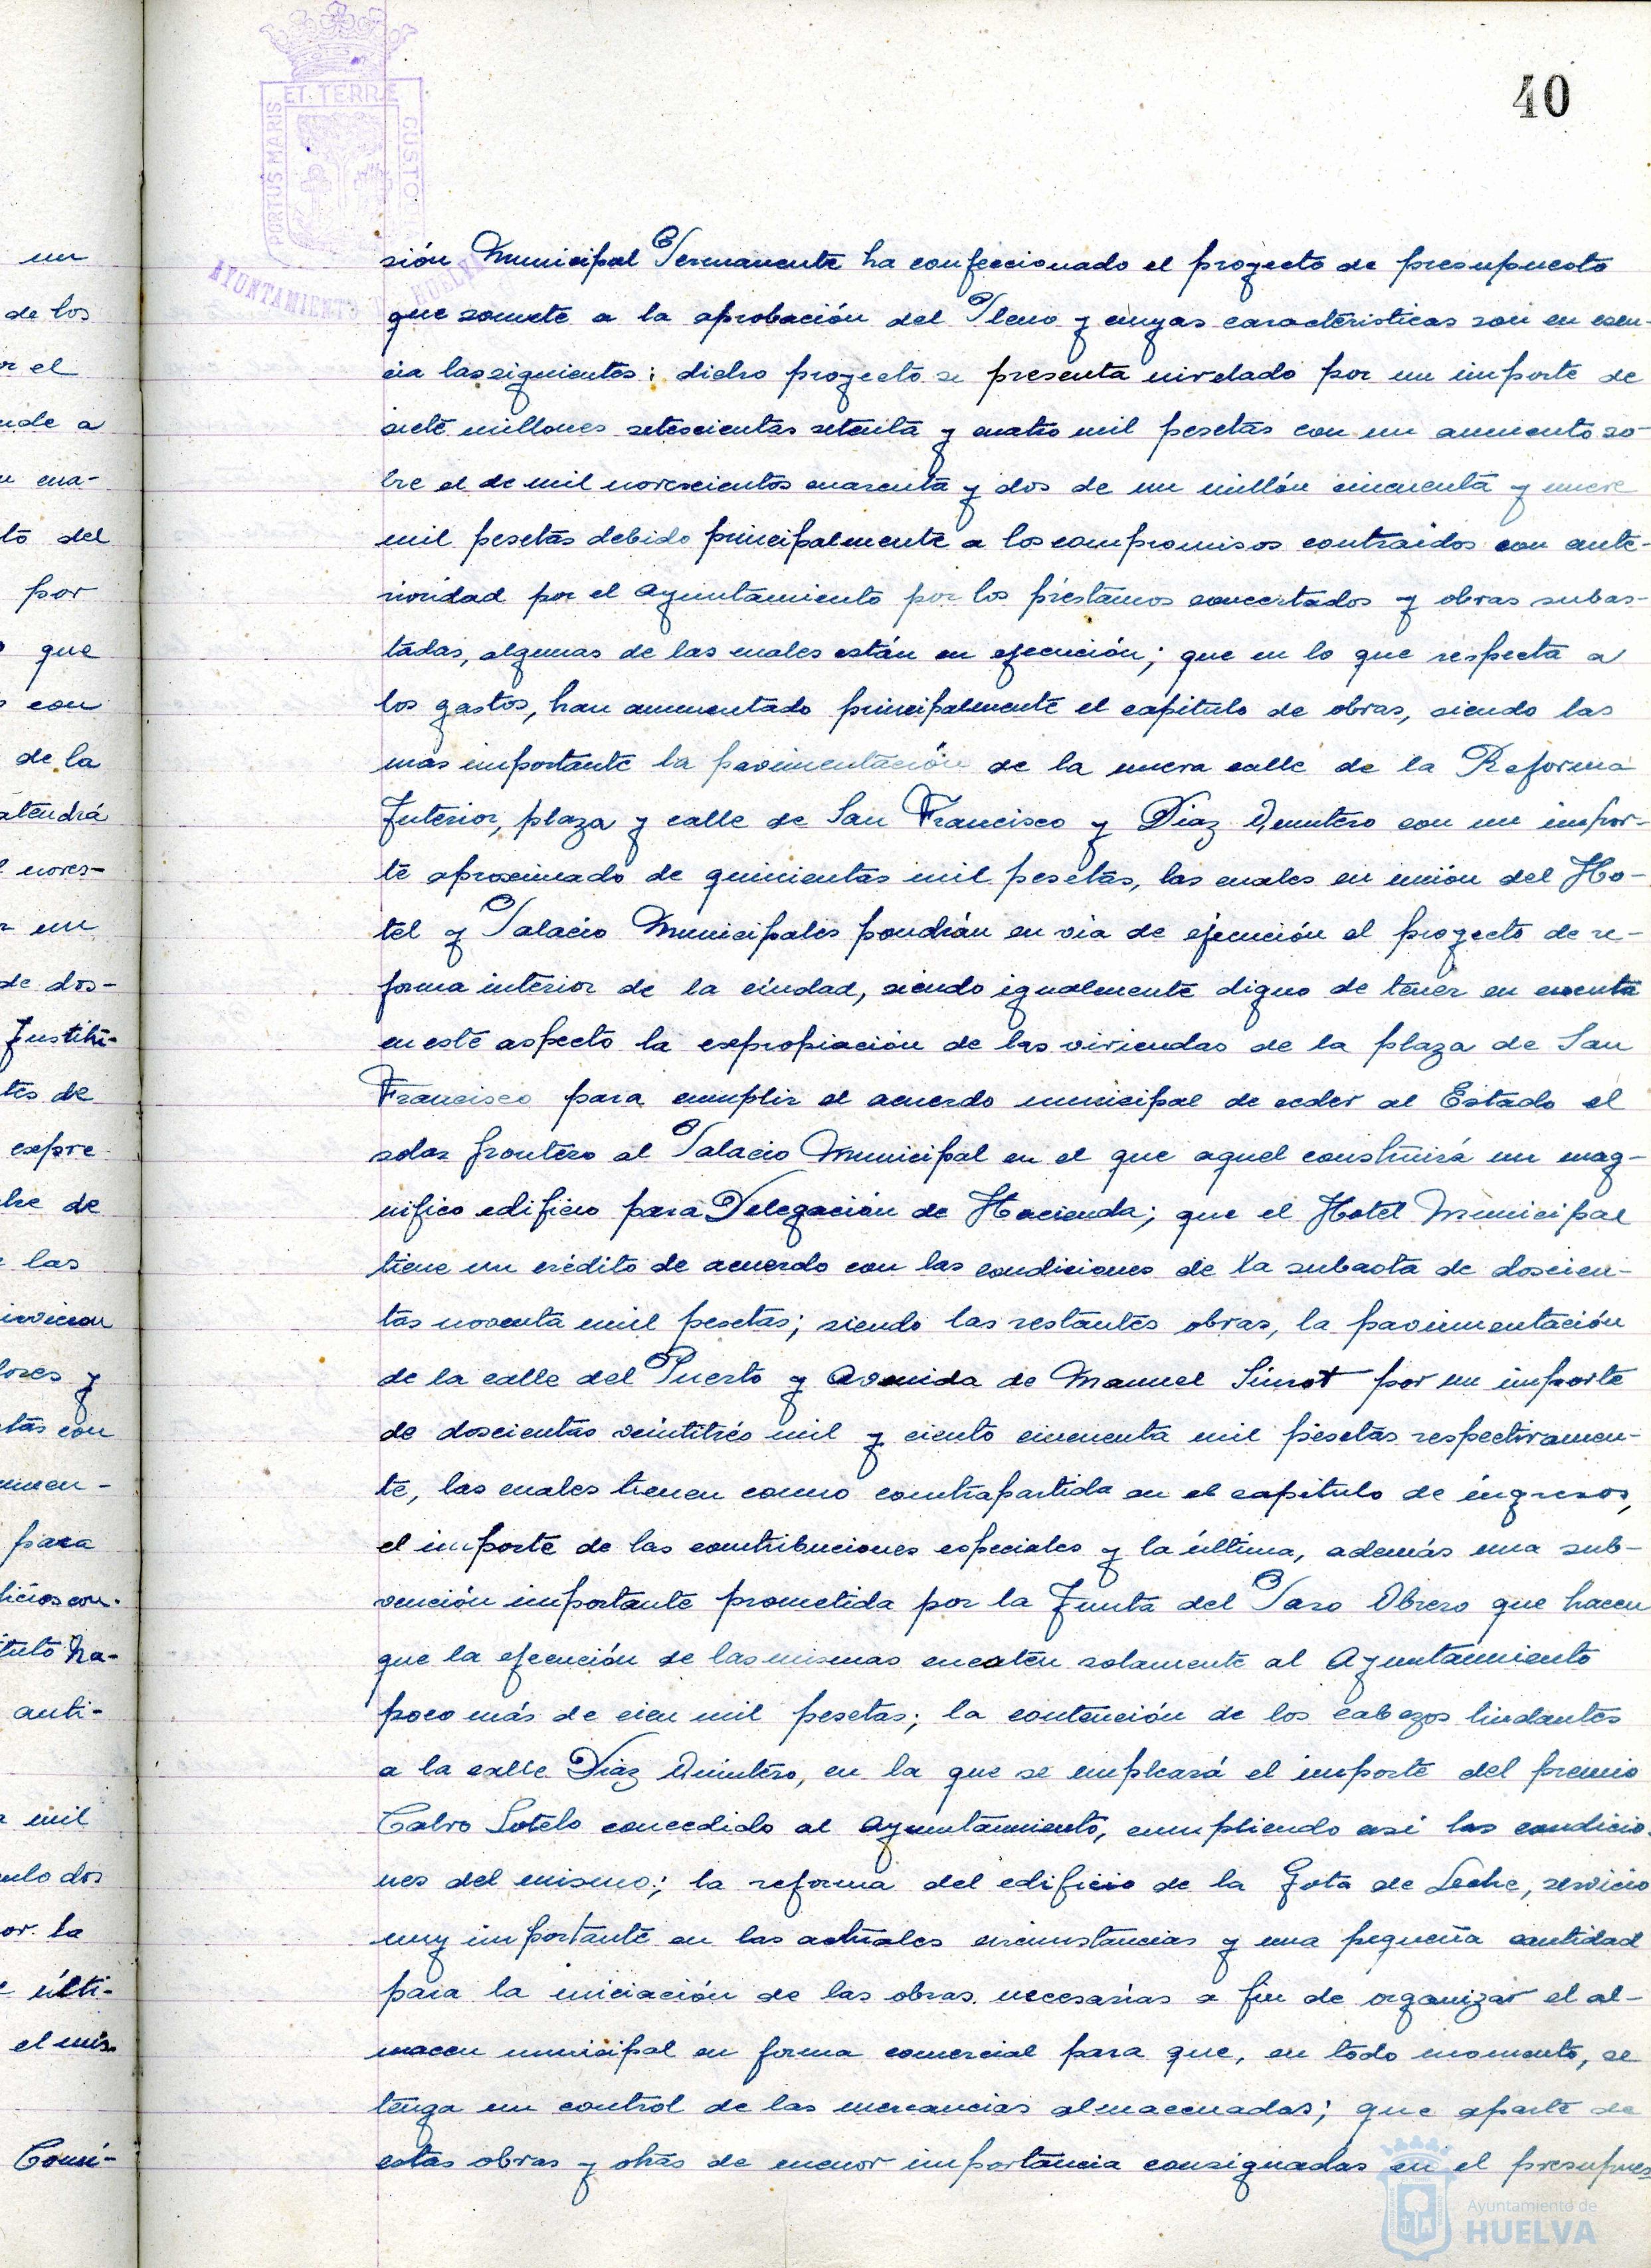 40
PORTUS MARIS ET TERRE CUSTODIA
AYUNTAMIENTO DE HUELVA
sión Municipal Permanente ha confeccionado el proyecto de presupuesto
que somete a la aprobación del Pleno y cuyas características son en esen-
cia las siguientes: dicho proyecto se presenta nivelado por un importe de
siete millones setescientas setenta y cuatro mil pesetas con un aumento so-
bre el de mil novescientos cuarenta y dos de un millón cincuenta y nueve
mil pesetas debido principalmente a los compromisos contraidos con ante-
rioridad por el Ayuntamiento por los préstamos concertados y obras subas-
tadas, algunas de las cuales están en ejecución; que en lo que respecta a
los gastos, han aumentado principalmente el capitulo de obras, siendo las
mas importante la pavimentación de la nueva calle de la Reforma
Interior, plaza y calle de San Francisco y Diaz Quintero con un impor-
te aproximado de quinientas mil pesetas, las cuales en unión del Ho-
tel y Palacio Municipales pondrán en via de ejecución el proyecto de re-
forma interior de la ciudad, siendo igualmente digno de tener en cuenta
en este aspecto la expropiación de las viviendas de la plaza de San
Francisco para cumplir el acuerdo municipal de ceder al Estado el
solar frontero al Palacio Municipal en el que aquel construirá un mag-
nifico edificio para Delegación de Hacienda; que el Hotel Municipal
tiene un crédito de acuerdo con las condiciones de la subasta de doscien-
tas noventa mil pesetas; siendo las restantes obras, la pavimentación
de la calle del Puerto y Avenida de Manuel Siurot por un importe
de doscientas veintitrés mil y ciento cincuenta mil pesetas respectivamen-
te, las cuales tienen como contrapartida en el capitulo de ingresos,
el importe de las contribuciones especiales y la última, además una sub-
vención importante prometida por la Junta del Paro Obrero que hacen
que la ejecución de las mismas cuesten solamente al Ayuntamiento
poco más de cien mil pesetas; la contención de los cabezos lindantes
a la calle Diaz Quintero, en la que se empleará el importe del premio
Calvo Sotelo concedido al Ayuntamiento, cumpliendo asi las condicio-
nes del mismo; la reforma del edificio de la Gota de Leche, servicio
muy importante en las actuales circunstancias y una pequeña cantidad
para la iniciación de las obras necesarias a fin de organizar el al-
macen municipal en forma comercial para que, en todo momento, se
tenga un control de las mercancias almacenadas; que aparte de
estas obras y otras de menor importancia consignadas en el presupues
un
de los
or el
nde a
cua-
to del
por
que
con
de la
atendrá
noves-
un
de dos-
Instit-
tes de
expre-
de
las
y
con
para
ha-
anti-
mil
dos
or la
últi-
el mis-
Comi-
Ayuntamiento de
HUELVA